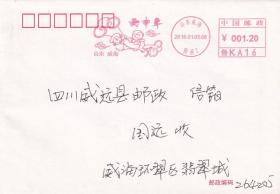 丙申年
山东 威海
山东威海
2016.01.05.08
中国邮政
¥ 001.20
鲁 KA16
四川威远县邮政
国远 收
威海环翠区翡翠城
邮政编码 264205